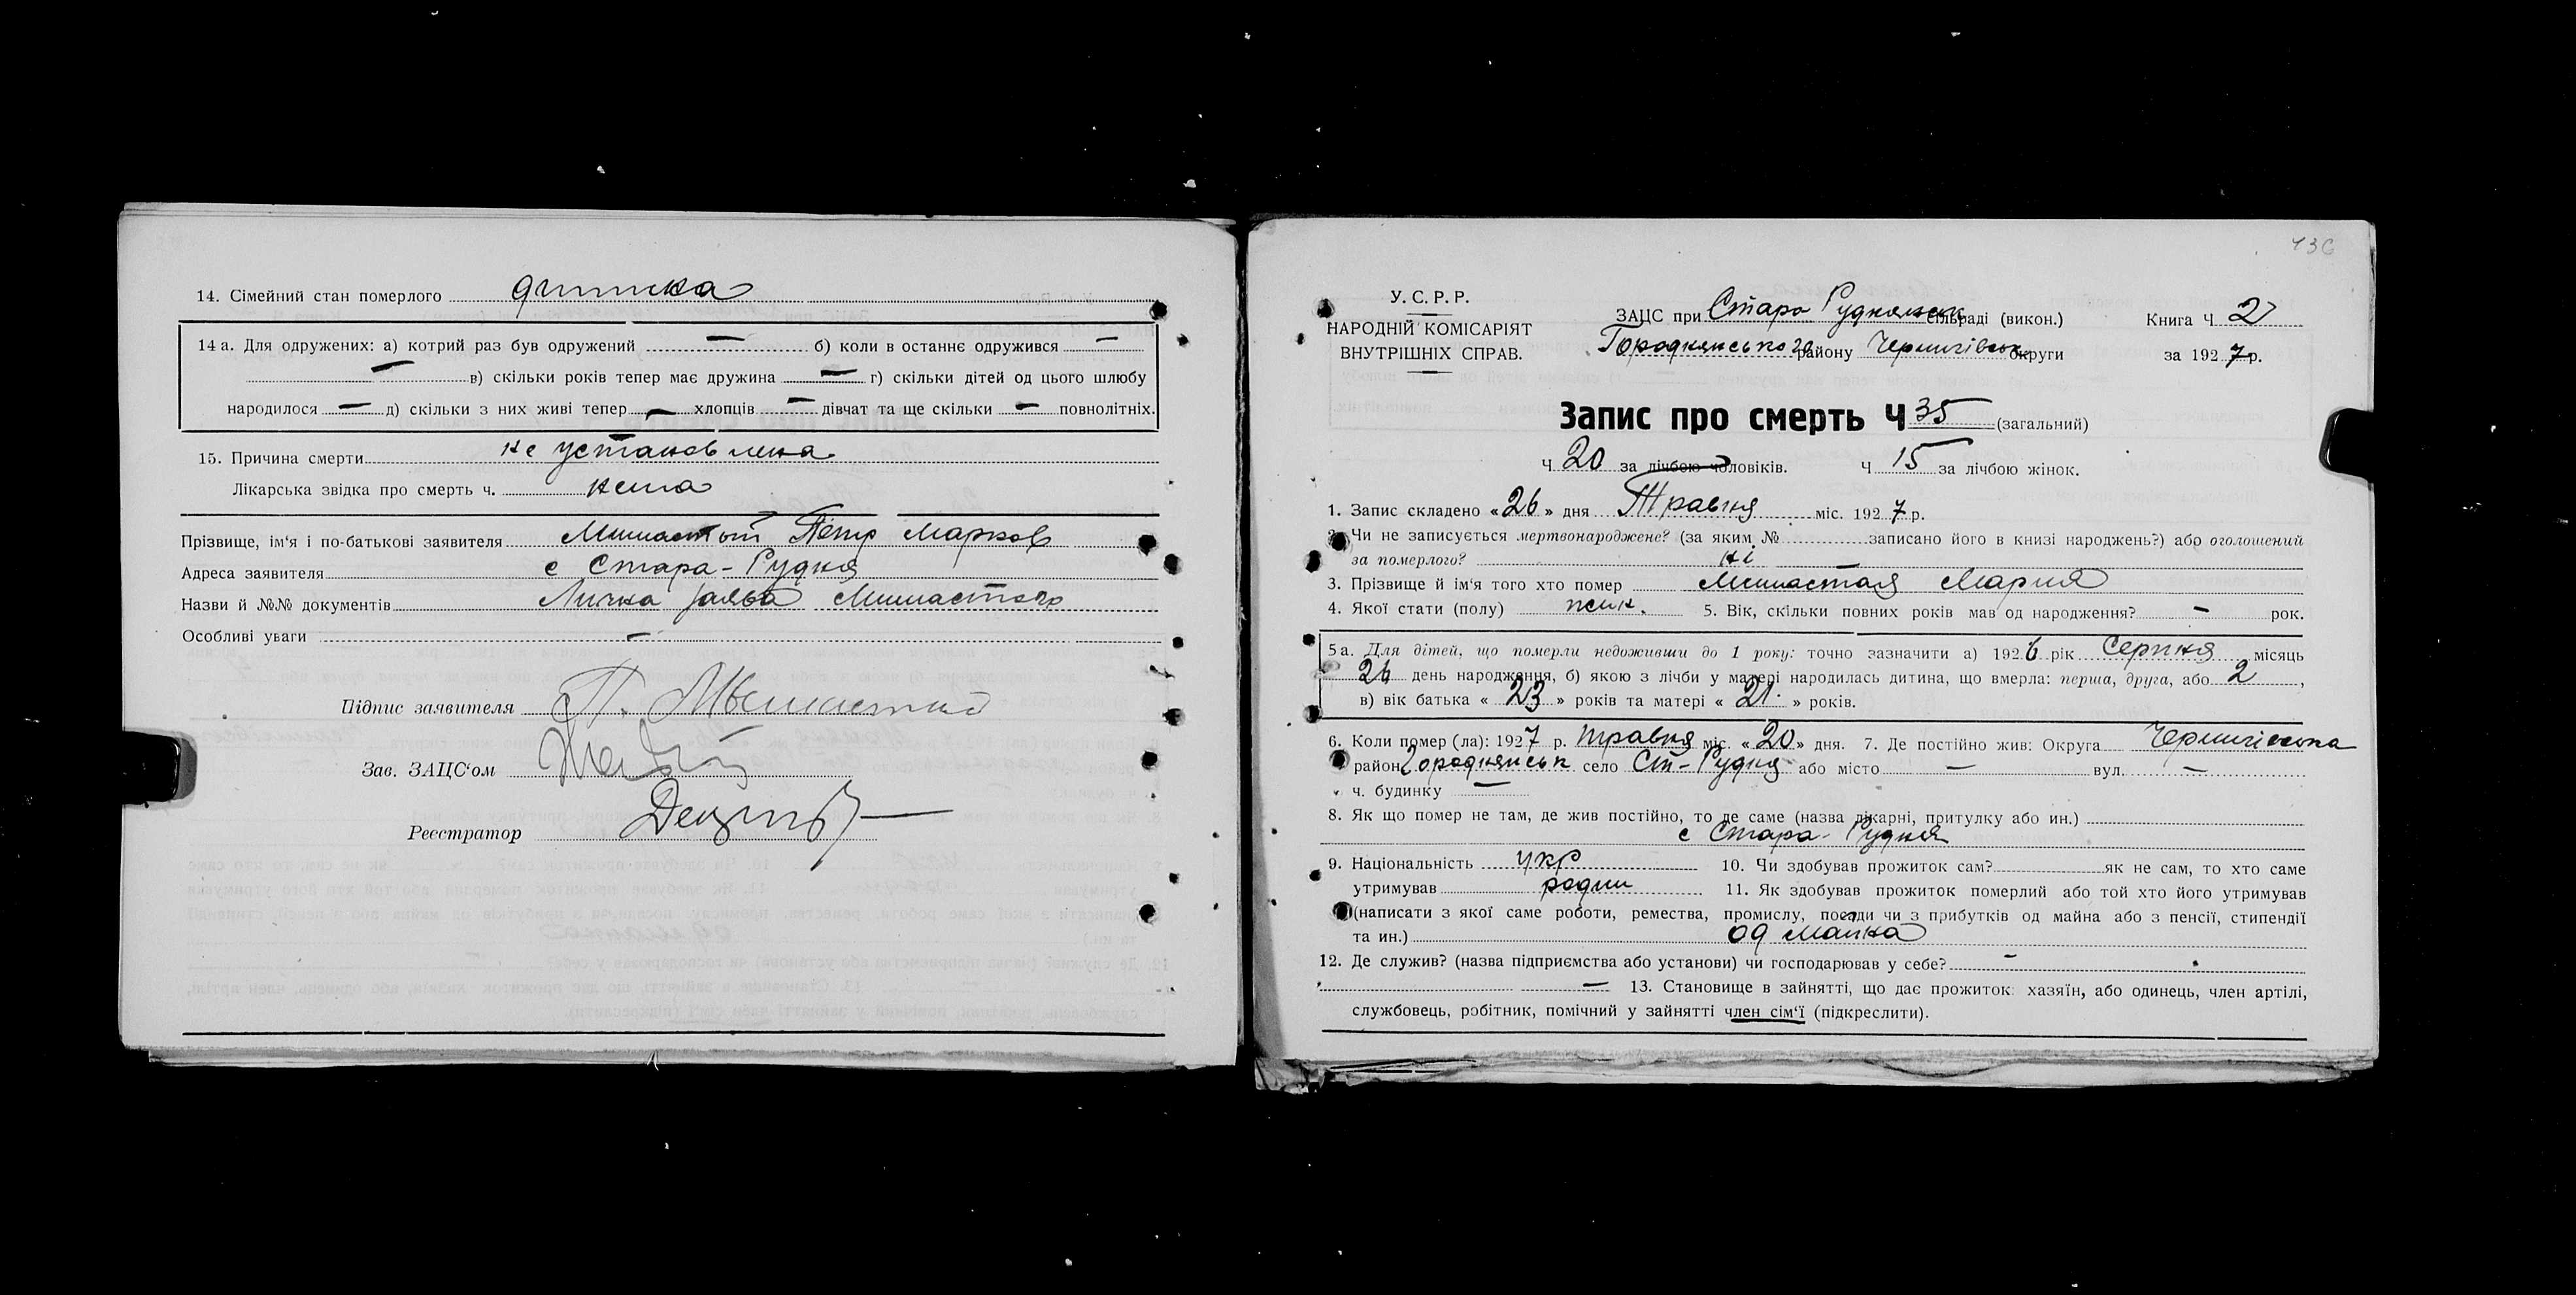 14. Сімейний стан померлого дитинка
14 а. Для одружених: а) котрий раз був одружений — б) коли в останнє одружився —
— в) скільки років тепер має дружина — г) скільки дітей од цього шлюбу
народилося — д) скільки з них живі тепер — хлопців — дівчат та ще скільки — повнолітніх.
15. Причина смерти не установлена
Лікарська звідка про смерть ч. нема
Прізвище, ім'я і по-батькові заявителя Петр Марков
Адреса заявителя с Стара-Рудня
Назви й №№ документів Лична заява
Особливі уваги —
Підпис заявителя П.
Зав. ЗАЦС'ом
Реєстратор
436
У.С.Р.Р.
НАРОДНІЙ КОМІСАРІЯТ
ВНУТРІШНІХ СПРАВ.
ЗАЦС при Старо Руднянськ сільраді (викон.) Книга Ч 2
Городнянського району Чернигівськ округи за 1927 р.
Запис про смерть Ч 35 (загальний)
Ч 20 за лічбою чоловіків. Ч 15 за лічбою жінок.
1. Запис складено «26» дня Травня міс. 1927 р.
2. Чи не записується мертвонароджене? (за яким № записано його в книзі народжень?) або оголошений
за померлого? ні —
3. Прізвище й ім'я того хто помер Мария
4. Якої стати (полу) жин. 5. Вік, скільки повних років мав од народження? — рок.
5 а. Для дітей, що померли недоживши до 1 року: точно зазначити а) 1926 рік Серпня місяць
26 день народження, б) якою з лічби у матері народилась дитина, що вмерла: перша, друга, або 2,
в) вік батька «23» років та матері «21» років.
6. Коли помер (ла): 1927 р. травня міс. «20» дня. 7. Де постійно жив: Округа Чернигівська
район Городнянськ село Ст-Рудня або місто — вул. —
ч. будинку —
8. Як що помер не там, де жив постійно, то де саме (назва лікарні, притулку або ин.)
с Стара-Рудня
9. Національність укр 10. Чи здобував прожиток сам? як не сам, то хто саме
утримував родит 11. Як здобував прожиток померлий або той хто його утримував
(написати з якої саме роботи, ремества, промислу, посади чи з прибутків од майна або з пенсії, стипендії
та ин.) од маика
12. Де служив? (назва підприємства або установи) чи господарював у себе? —
— 13. Становище в зайнятті, що дає прожиток: хазяїн, або одинець, член артілі,
службовець, робітник, помічний у зайнятті член сім'ї (підкреслити).